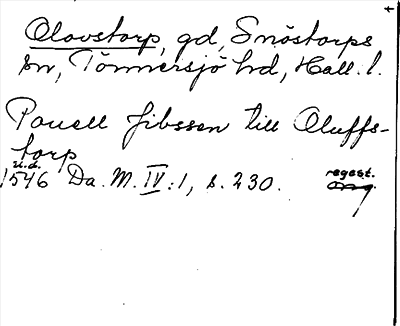 Olovstorp, gd, Snöstorps
sn, Tönnersjö hd, Hall. l.
Pouell Jibssen till Oluffs-
torp
u.d.
1546 Da. M. IV:1, s. 230. regest.
orig.